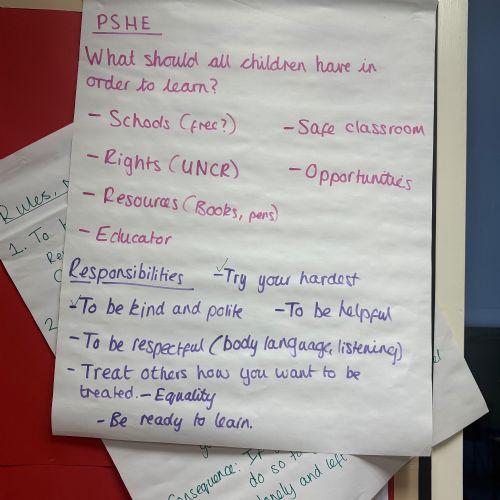 PSHE
What should all children have in
order to learn?
- Schools (free?)
- Safe classroom
- Rights (UNCR)
- Opportunities
- Resources (Books, pens)
- Educator
Responsibilities
- Try your hardest
- To be kind and polite
- To be helpful
- To be respectful (body language, listening)
- Treat others how you want to be
treated. - Equality
- Be ready to learn.
Rules,
1. To
2.
Consequence: If
do so to
lonely and left